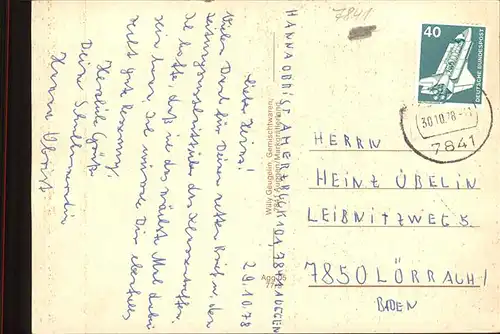 7841
40
DEUTSCHE BUNDESPOST
30.10.78
7841
HERRN
HEINZ ÜBELIN
LEIBNITZWEG 5
7850 LÖRRACH/
BADEN
29.10.78
Lieber Heinz!
Vielen Dank für Deinen netten Brief u. den
Ich hoffe, daß ich das nächste Mal dabei
sein kann. Ich wünsche Dir ebenfalls
recht gute Besserung.
Herzliche Grüße
Deine Schulkameradin
Hanna Obrist
HANNA OBRIST AM ERZBUCK 101 7841 AUGGEN